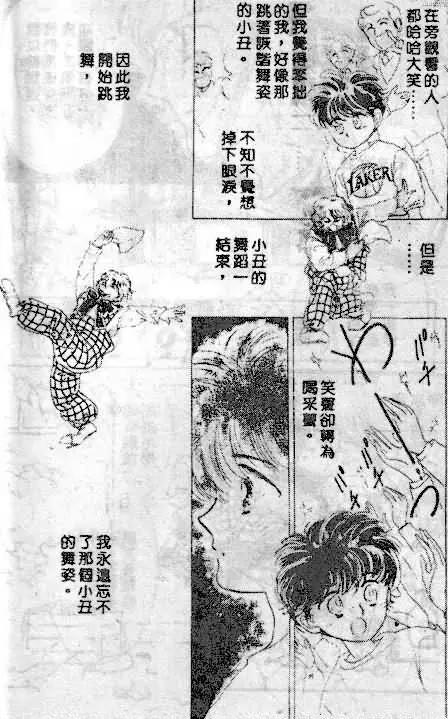 在旁觀看的人
都哈哈大笑……
但我覺得笨拙
的我,好像那
跳著詼諧舞姿
的小丑。
LAKER
不知不覺想
掉下眼淚,
但是
……
小丑的
舞蹈一
結束,
わ
っ
パチ
パチ
パチ
笑聲卻轉為
喝采聲。
因此我
開始跳
舞,
我永遠忘不
了那個小丑
的舞姿。